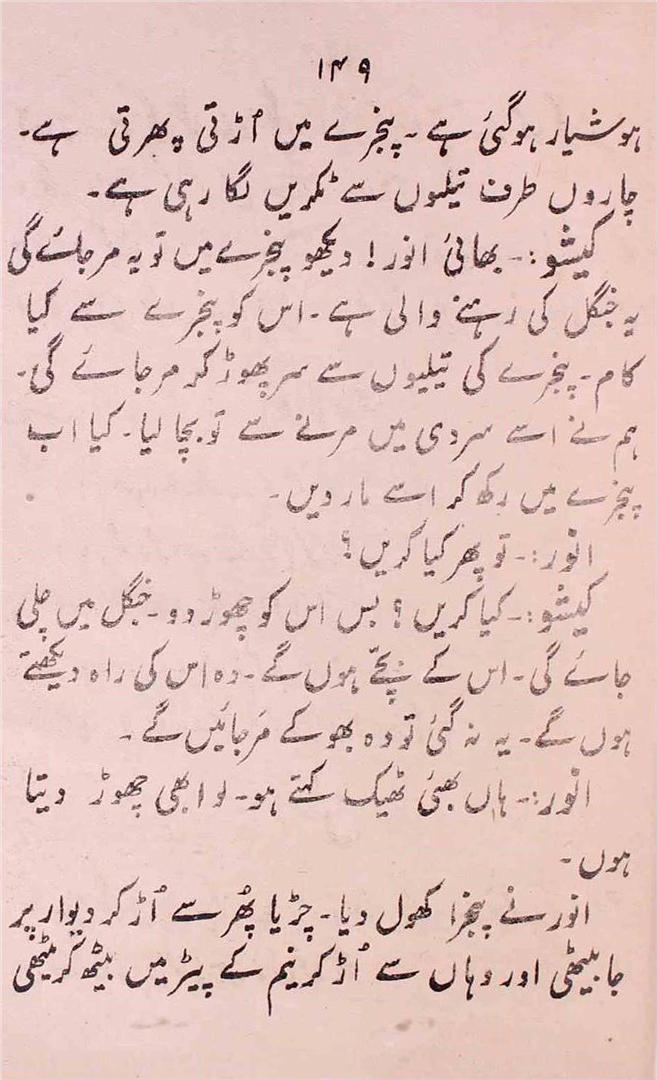 ۱۴۹
ہوشیار ہوگئی ہے۔ پنجرے میں اُڑتی پھرتی ہے۔
چاروں طرف تیلیوں سے ٹکریں لگا رہی ہے۔
کیشو:۔ بھائی انور! دیکھو پنجرے میں تو یہ مر جائے گی
یہ جنگل کی رہنے والی ہے۔ اس کو پنجرے سے کیا
کام۔ پنجرے کی تیلیوں سے سر پھوڑ کر مر جائے گی۔
ہم نے اسے سردی میں مرنے سے تو بچا لیا۔ کیا اب
پنجرے میں رکھ کر اسے مار دیں۔
انور:۔ تو پھر کیا کریں؟
کیشو:۔ کیا کریں؟ بس اس کو چھوڑ دو۔ جنگل میں چلی
جائے گی۔ اس کے بچّے ہوں گے۔ وہ اس کی راہ دیکھتے
ہوں گے۔ یہ نہ گئی تو وہ بھوکے مَر جائیں گے۔
انور:۔ ہاں بھئی ٹھیک کہتے ہو۔ لو ابھی چھوڑ دیتا
ہوں۔
انور نے پنجرا کھول دیا۔ چڑیا پھُر سے اُڑ کر دیوار پر
جا بیٹھی اور وہاں سے اُڑ کر نیم کے پیڑ میں بیٹھ کر میٹھی